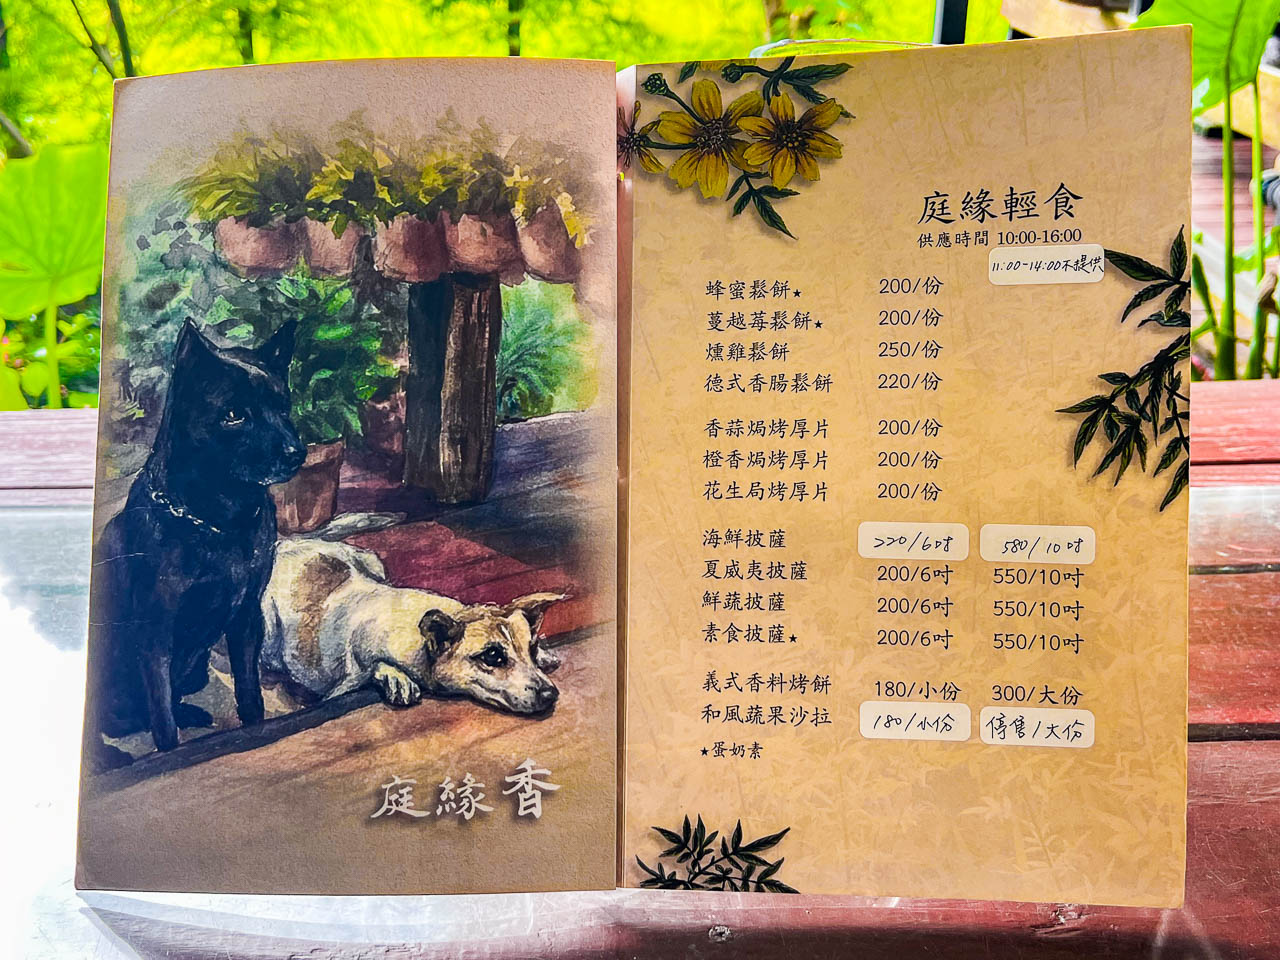 庭緣香
庭緣輕食
供應時間 10:00-16:00
11:00-14:00不提供
蜂蜜鬆餅★ 200/份
蔓越莓鬆餅★ 200/份
燻雞鬆餅 250/份
德式香腸鬆餅 220/份
香蒜焗烤厚片 200/份
橙香焗烤厚片 200/份
花生局烤厚片 200/份
海鮮披薩 220/6吋 580/10吋
夏威夷披薩 200/6吋 550/10吋
鮮蔬披薩 200/6吋 550/10吋
素食披薩★ 200/6吋 550/10吋
義式香料烤餅 180/小份 300/大份
和風蔬果沙拉 180/小份 停售/大份
★蛋奶素